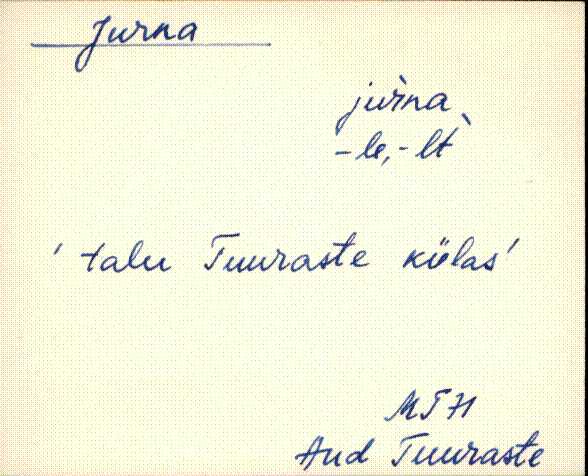 Jurna
jur̀na
-le, -lt̀
'talu Tuuraste külas'
MT 71
Aud Tuuraste